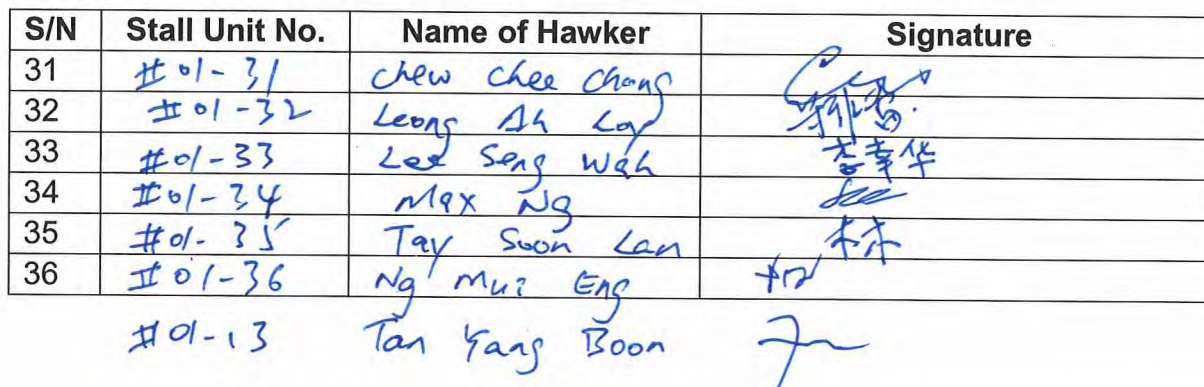 S/N Stall Unit No. Name of Hawker Signature
31 #01-31 Chew Chee Chang
32 #01-32 Leong Ah Loy
33 #01-33 Lee Seng Wah 李幸华
34 #01-34 Max Ng
35 #01-35 Tay Soon Lan 林
36 #01-36 Ng Mui Eng
#01-13 Tan Yang Boon